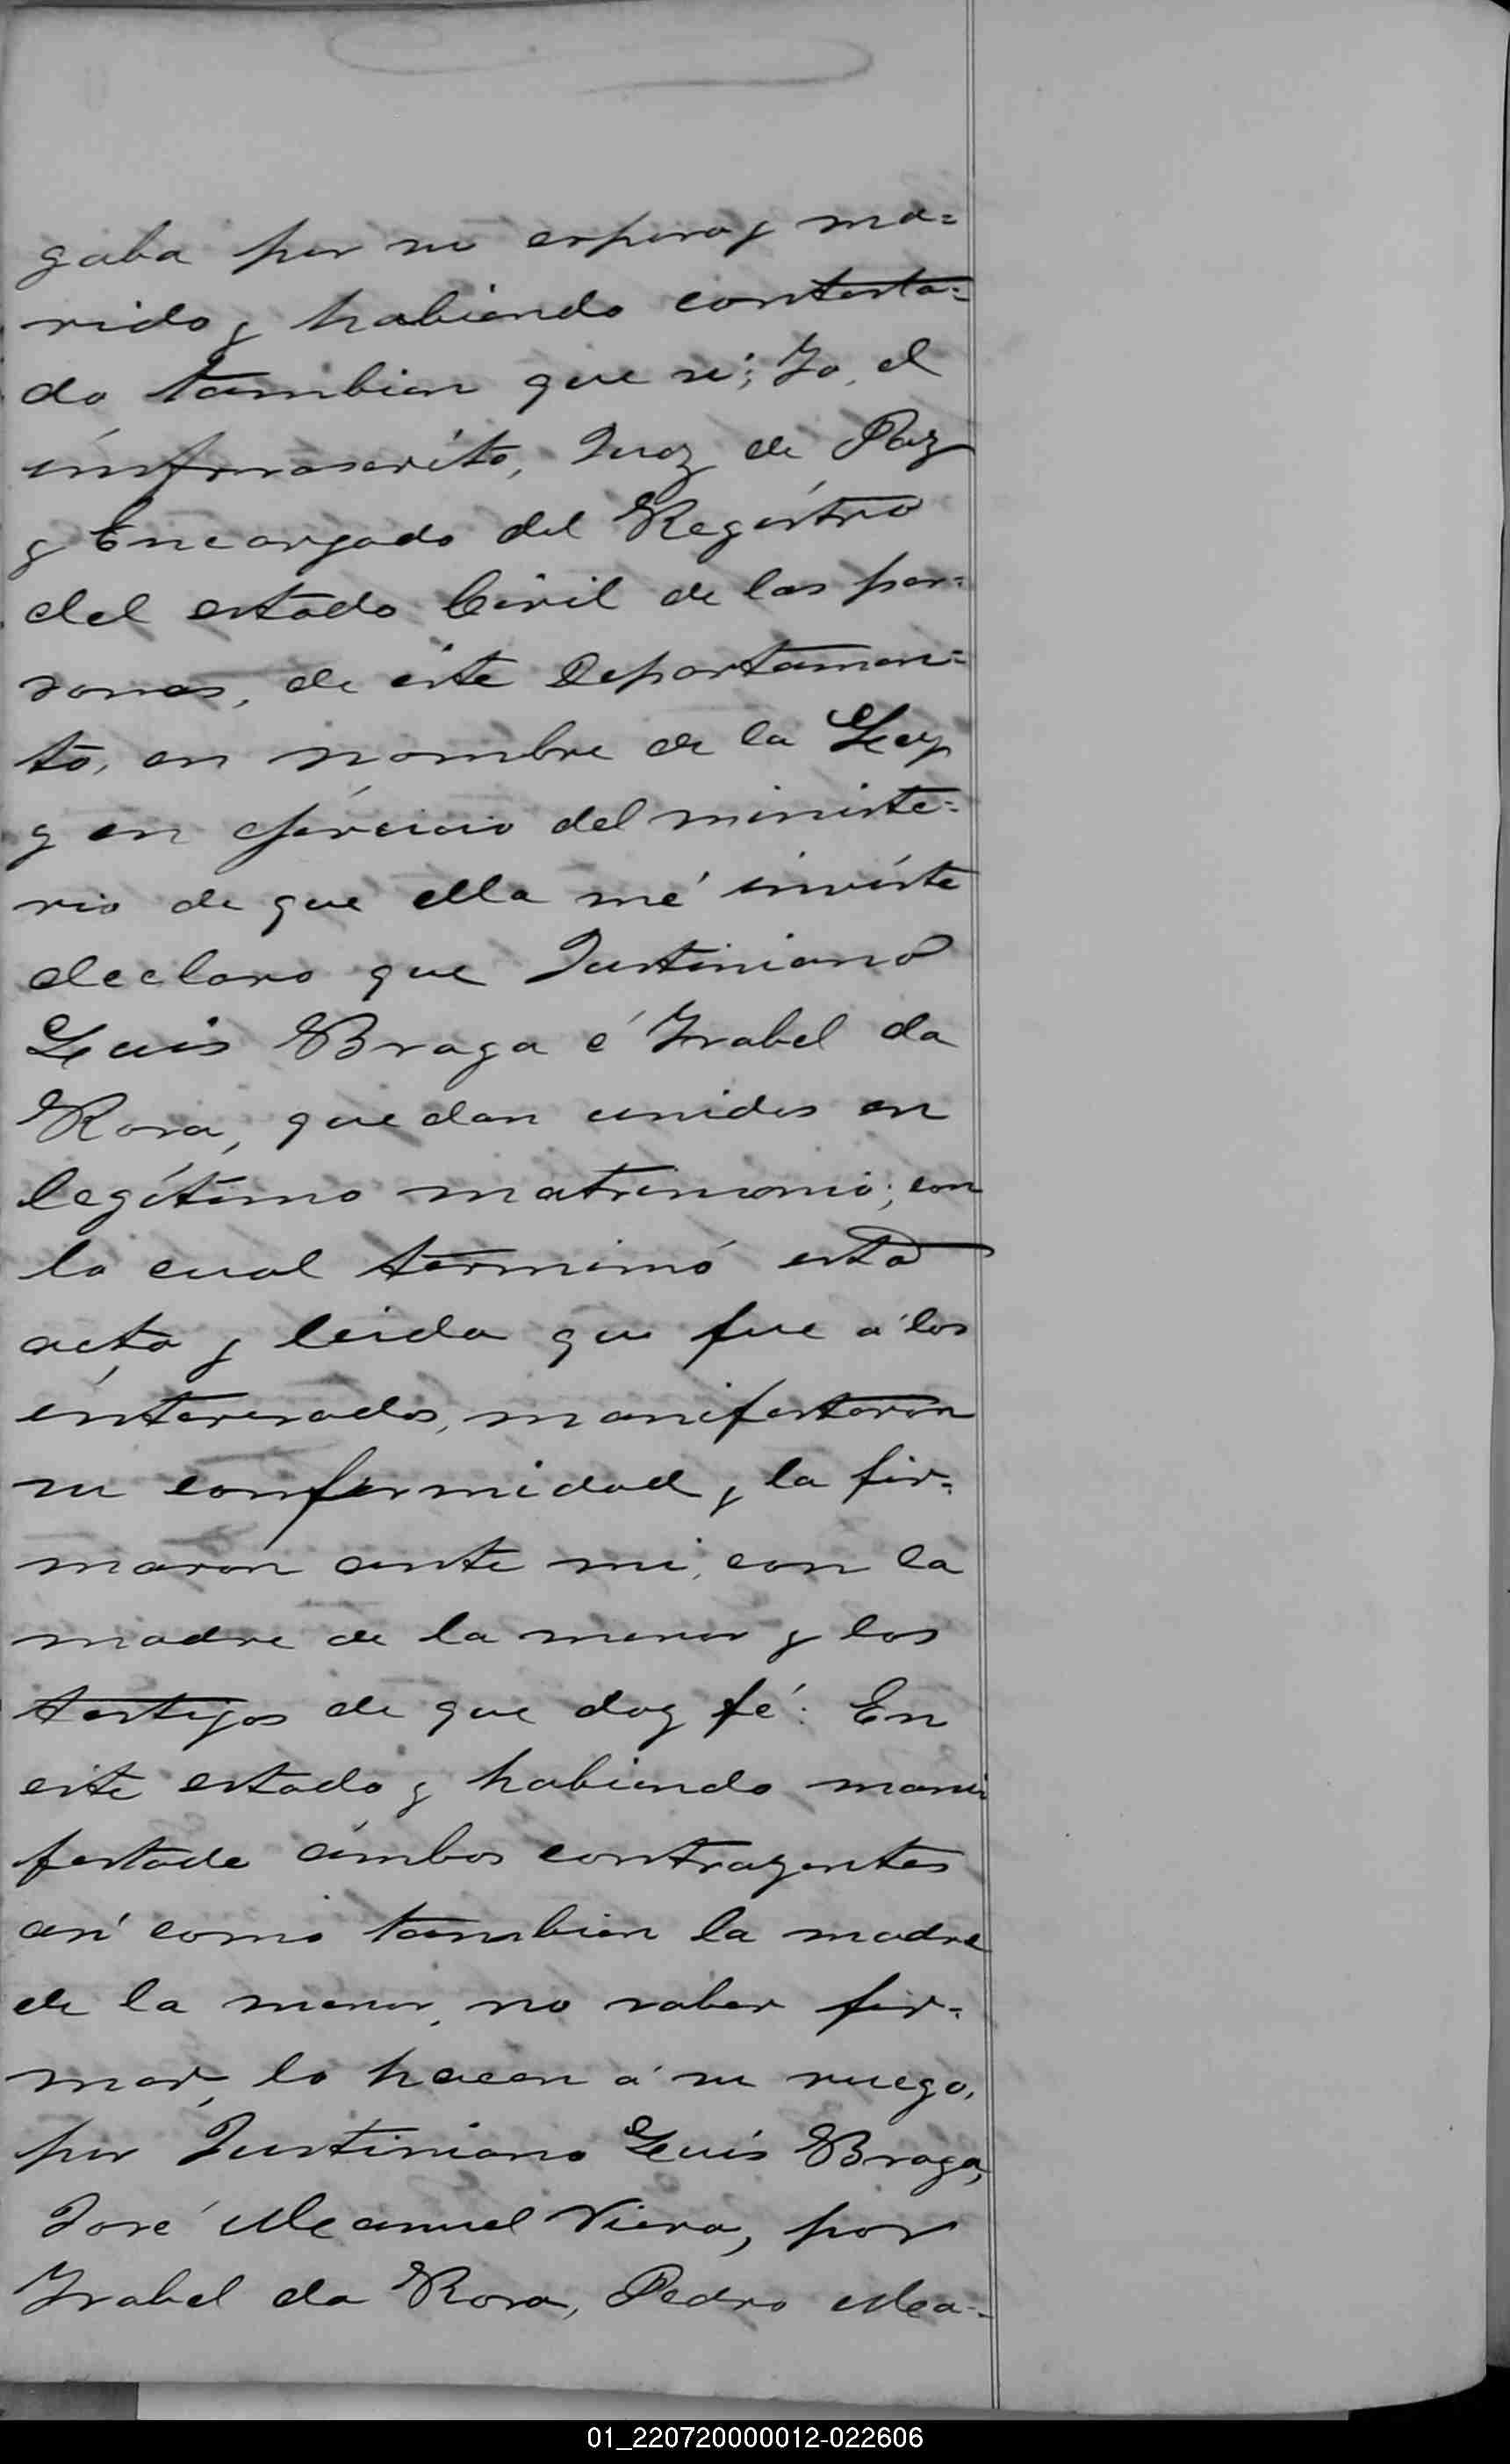 gaba por su esposo y ma=
rido, y habiendo contesta=
do tambien que si; Yo, el
infrascrito, Juez de Paz
y Encargado del Registro
del estado Civil de las per=
sonas, de este Departamen=
to, en nombre de la Ley
y en ejercicio del ministe=
rio de que ella mé inviste
declaro que Justiniano
Luis Braga é Isabel da
Rosa, quedan unidos en
legítimo matrimonio; con
lo cual terminó esta
acta y leida que fue a los
interesados, manifestaron
su conformidad y la fir=
maron ante mi, con la
madre de la menor y los
testigos de que doy fé. En
este estado y habiendo mani
festado ámbos contrayentes
asi como tambien la madre
de la menor, no saber fir=
mar, lo hacen á su ruego,
por Justiniano Luis Braga,
José Manuel Viera, por
Isabel da Rosa, Pedro Ma-
01_220720000012-022606